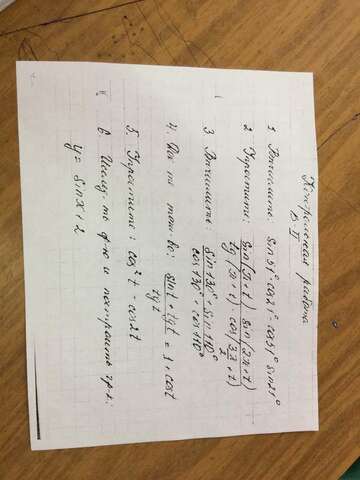 Контрольная работа
В II
1 Вычислите: sin 51° cos 21° - cos 51° sin 21°
2 Упростите: sin(π+t) sin(2π+t) / tg(π+t) · cos(3π/2+t)
3 Вычислите: sin 130° + sin 110° / cos 130° + cos 110°
4. тож-во: sin t + tg t / tg t = 1 + cos t
5. Упростите: cos² t - cos 2t
6 Исслед-ть ф-ю и построить гр-к:
y = sin x + 2